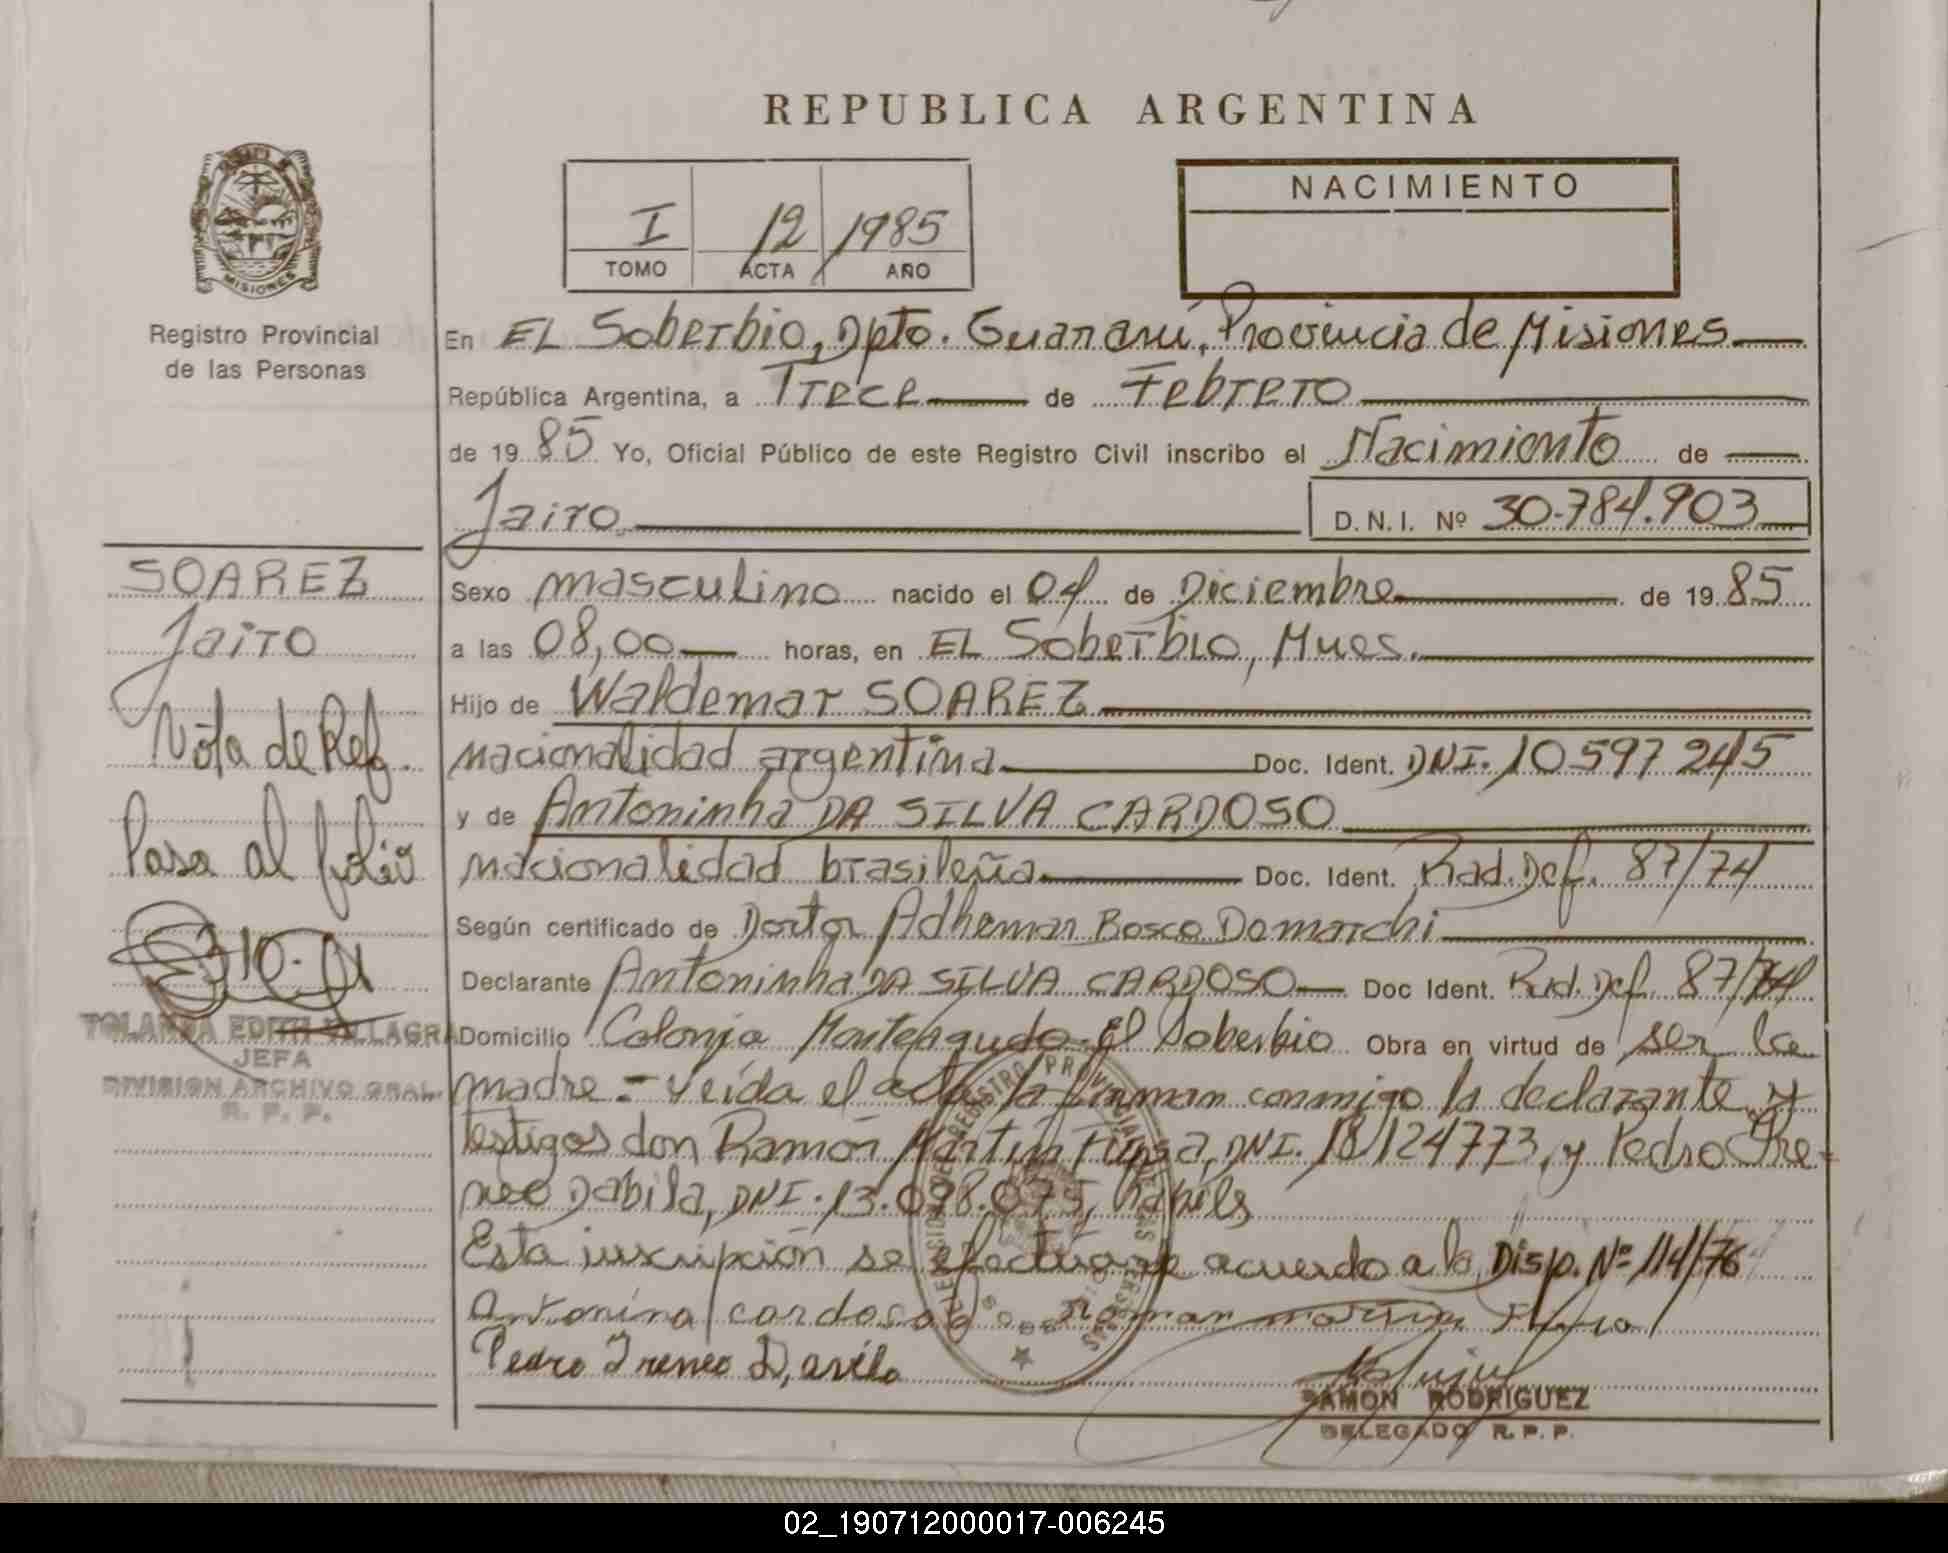 REPUBLICA ARGENTINA
MISIONES
Registro Provincial
de las Personas
I 12 1985
TOMO ACTA AÑO
NACIMIENTO
En EL Soberbio, Dpto. Guaraní, Provincia de Misiones
República Argentina, a Trece de Febrero
de 1985 Yo, Oficial Público de este Registro Civil inscribo el Nacimiento de
Jairo
D.N.I. Nº 30.784.903
SOAREZ
Jairo
Nota de Ref.
Pasa al folio
YOLANDA EDITH VILLAGRA
JEFA
DIVISION ARCHIVO GRAL.
R. P. P.
Sexo masculino nacido el 04 de Diciembre de 1985
a las 08,00 horas, en EL Soberbio, Mnes.
Hijo de Waldemar SOAREZ
nacionalidad argentina Doc. Ident. DNI. 10597245
y de Antoninha DA SILVA CARDOSO
nacionalidad brasileña Doc. Ident. Rad. Def. 87/74
Según certificado de Doctor Adhemar Bosco Demarchi
Declarante Antoninha DA SILVA CARDOSO Doc Ident. Rad. Def. 87/74
Domicilio Colonia Monteagudo-El Soberbio Obra en virtud de ser la
madre.= Leída el acta la firman conmigo la declarante y
testigos don Ramón Martín DNI. 18124773, y Pedro Ire-
neo Dabila, DNI. 13.098.075, hábiles
Esta inscripción se efectúa de acuerdo a la Disp. Nº 114/76
Antonina cardoso Raman martin
Pedro Ireneo Davila
RAMON RODRIGUEZ
DELEGADO R. P. P.
02_190712000017-006245